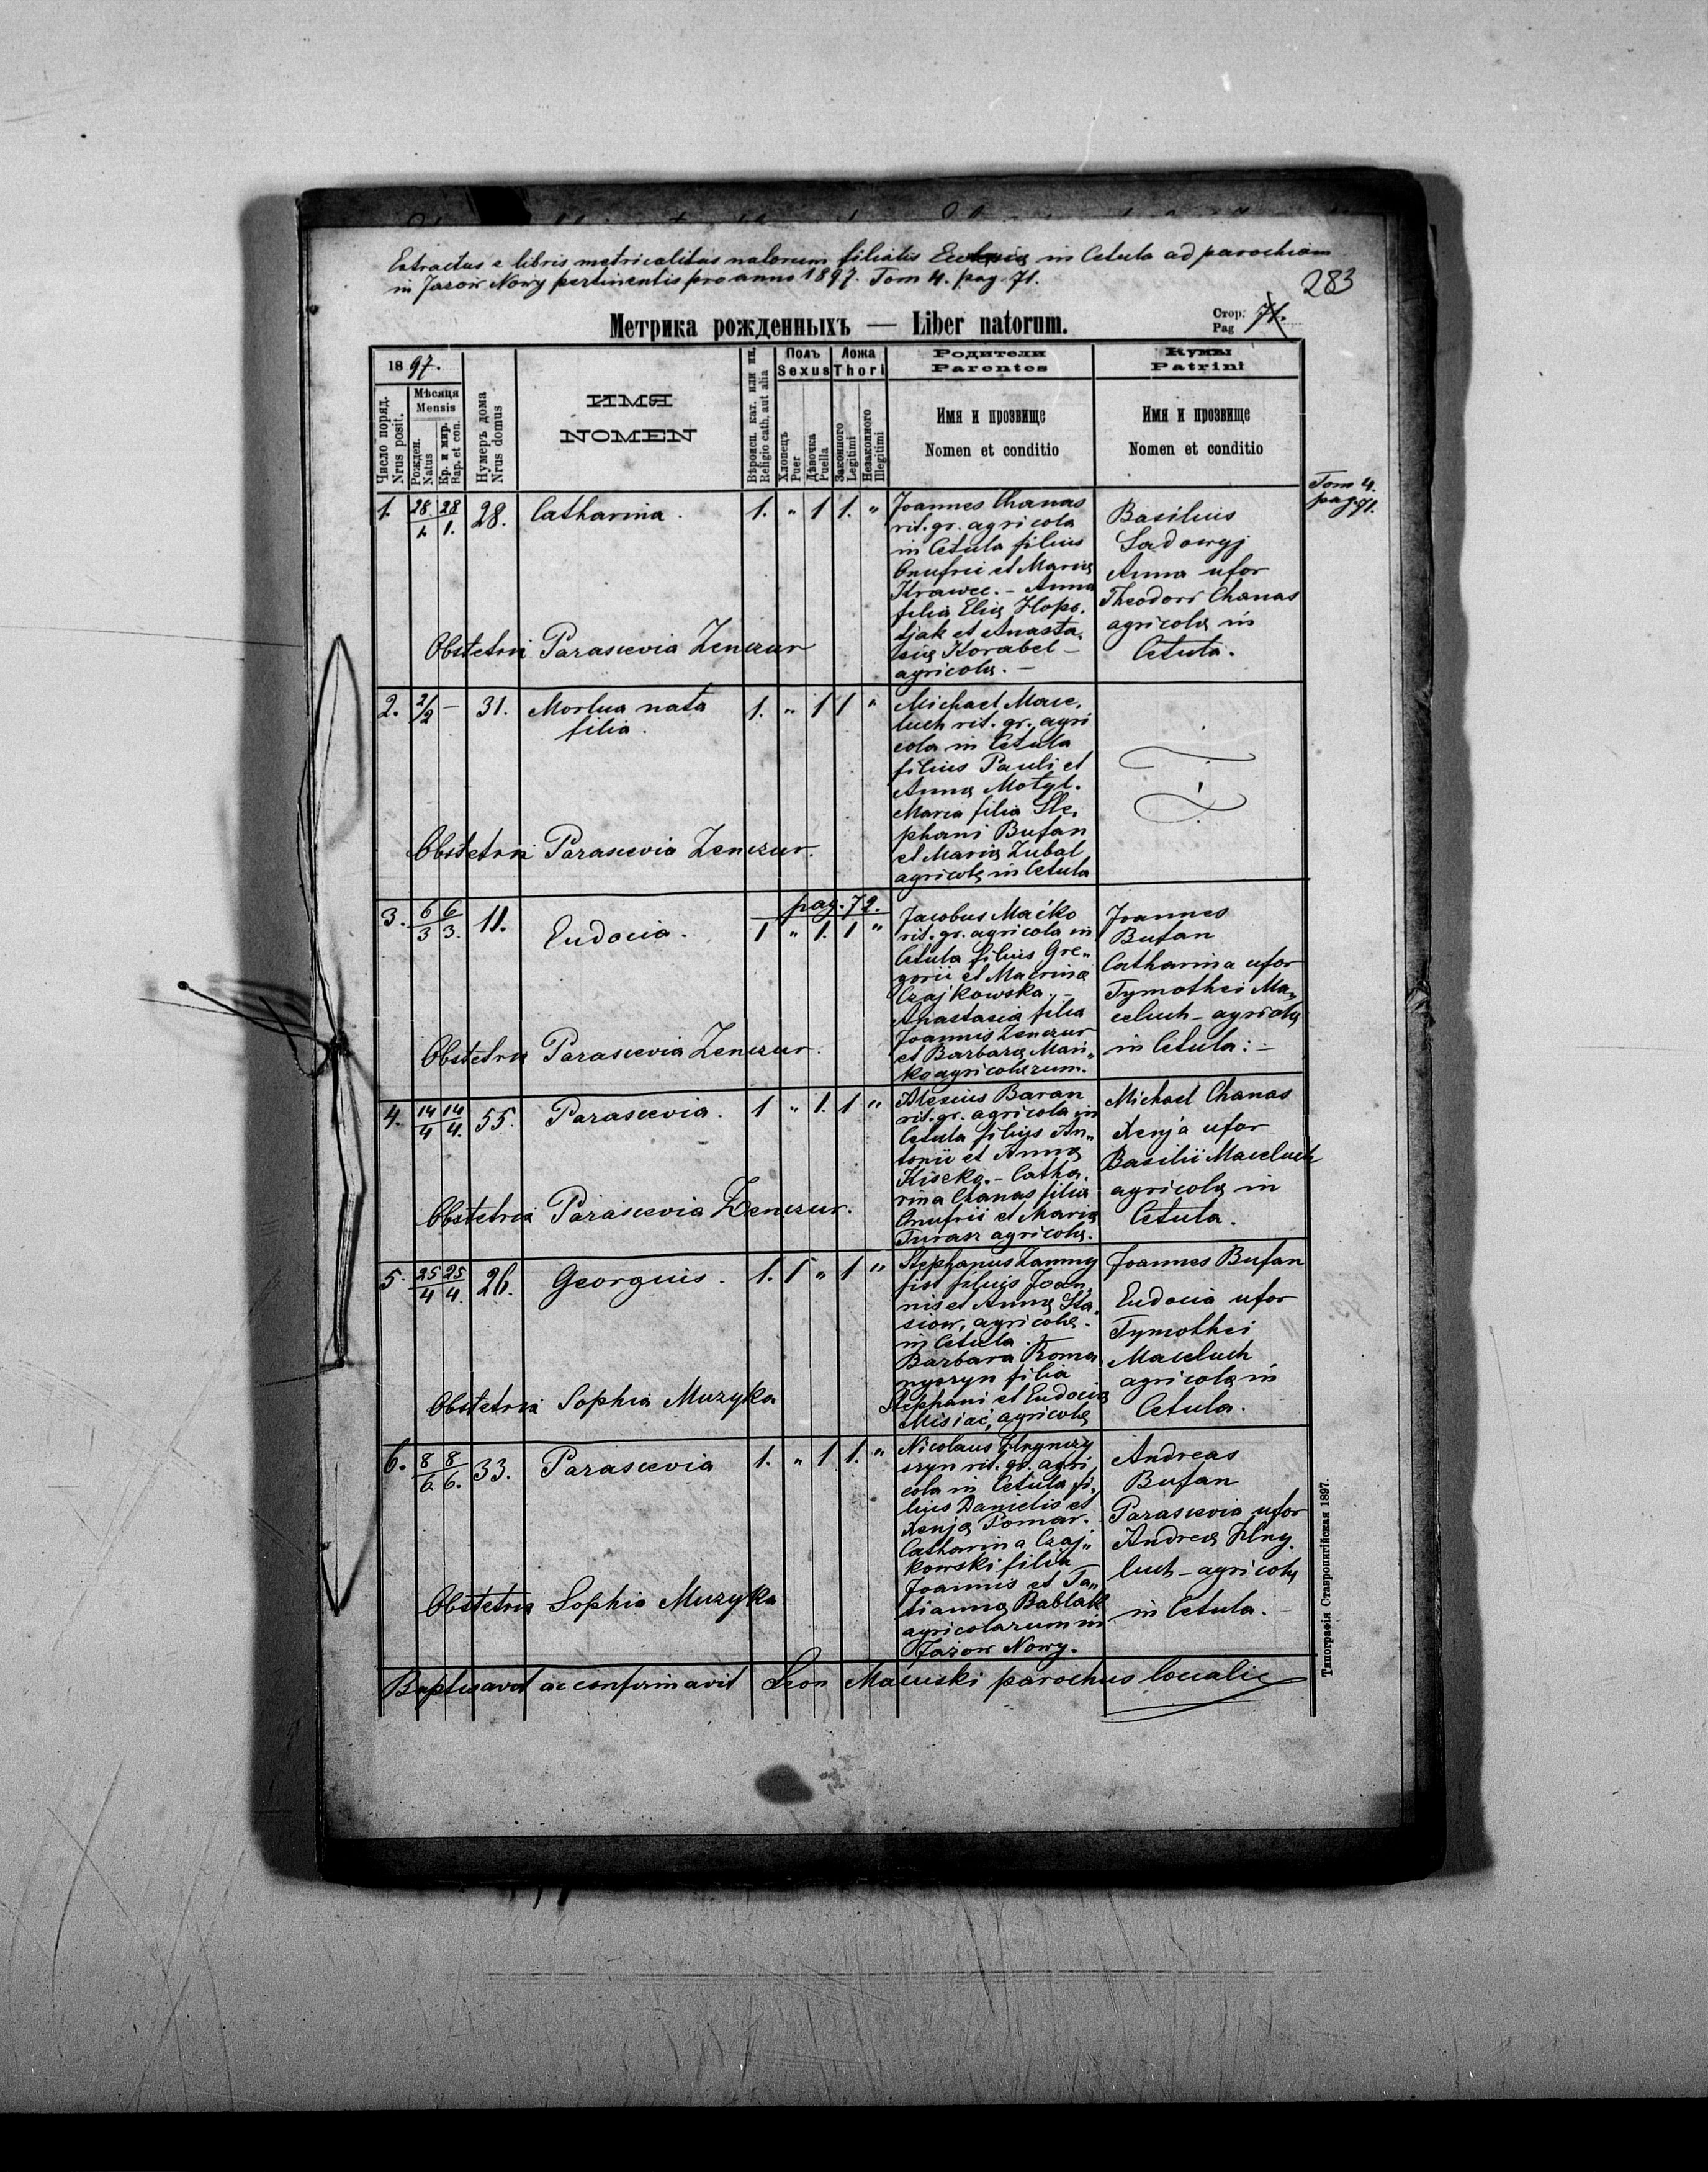 Extractus e libris metricalibus natorum filialis Ecclesiæ in Cetula ad parochiam
in Jazow Nowy pertinentis pro anno 1897. Tom 4. pag. 71.
283
Метрика рожденныхъ — Liber natorum.
Стор.
Pag 71.
1897.
Число поряд.
Nrus posit.
Мѣсяця
Mensis
Рожден.
Natus
Кр. и мир.
Bap. et con.
Нумеръ дома
Nrus domus
ИМЯ
NOMEN
Вѣроисп. кат. или ин.
Religio cath. aut alia
Полъ
Sexus
Хлопецъ
Puer
Дѣвочка
Puella
Ложа
Thori
Законного
Legitimi
Незаконного
Illegitimi
Родители
Parentes
Имя и прозвище
Nomen et conditio
Кумы
Patrini
Имя и прозвище
Nomen et conditio
Tom 4.
pag. 71.
1. 28/1 28/1. 28. Catharina. 1. " 1 1. "
Joannes Chanas
rit. gr. agricola
in Cetula filius
Onufrii et Mariæ
Krawec. - Anna
filia Eliæ Hops.
tjak et Anasta.
siæ Korabel -
agricolæ. -
Basilius
Sadowyj
Anna uxor
Theodori Chanas
agricolæ in
Cetula.
Obstetrix Parascevia Zenczur
2. 2/2 - 31. Mortua nata
filia.
1. " 1 1 "
Michael Mace,
luch rit. gr. agri
cola in Cetula
filius Pauli et
Annæ Motyl.
Maria filia Ste,
phani Bufan
et Mariæ Zubal
agricolæ in Cetula
Obstetrix Parascevia Zenczur.
pag. 72.
3. 6/3 6/3. 11. Eudocia. 1 " 1. 1 "
Jacobus Maćko
rit. gr. agricola in
Cetula filius Gre„
gorii et Macrina
Czajkowska. -
Anastasia filia
Joannis Zenczur
et Barbaræ Mań„
ko agricolarum.
Joannes
Bufan
Catharina uxor
Tymothei Ma„
celuch - agricolæ
in Cetula: -
Obstetrix Parascevia Zenczur.
4. 14/4 14/4. 55. Parascevia. 1 " 1. 1 "
Alexius Baran
rit. gr. agricola in
Cetula filius An„
tonii et Annæ
Kiszka. - Catha.
rina Chanas filia
Onufrii et Mariæ
Turasz agricolæ.
Michael Chanas
Xenja uxor
Basilii Maceluch
agricolæ in
Cetula.
Obstetrix Parascevia Zenczur.
5. 25/4 25/4. 26. Georgius. 1. 1 " 1 "
Stephanus Zamny
fist filius Joan,
nis et Annæ Sta.
siow, agricolæ.
in Cetula.
Barbara Roma
nyszyn filia
Stephani et Eudociæ
Misiać, agricolæ
Joannes Bufan
Eudocia uxor
Tymothei
Maceluch
agricolæ in
Cetula.
Obstetrix Sophia Muzyka
6. 8/6. 8/6. 33. Parascevia 1. " 1 1. "
Nicolaus Hrynczy
szyn rit. gr. agri
cola in Cetula fi.
lius Danielis et
Xenja Pomar.
Catharina Czaj„
kowski filia
Joannis et Ta„
tianna Bablak
agricolarum in
Jazow Nowy.
Andreas
Bufan
Parascevia uxor
Andreæ Hry.
luch - agricolæ
in Cetula.
Obstetrix Sophia Muzyka
Baptisavit ac confirmavit Leon Macuski parochus localis
Типографія Ставропигійская 1897.